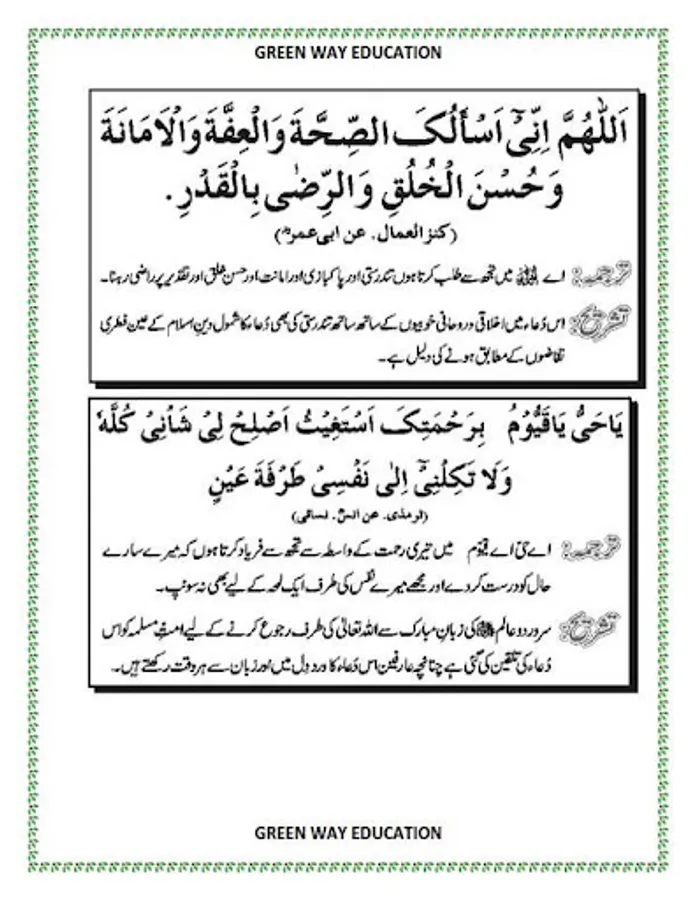 GREEN WAY EDUCATION
اَللّٰهُمَّ اِنِّیْٓ اَسْأَلُکَ الصِّحَّةَ وَالْعِفَّةَ وَالْاَمَانَةَ
وَحُسْنَ الْخُلُقِ وَالرِّضٰی بِالْقَدْرِ.
(کنز العمال، عن ابی عمرؓ)
ترجمہ: اے اللہ میں تجھ سے طلب کرتا ہوں تندرستی اور پاکبازی اور امانت اور حسن خلق اور تقدیر پر راضی رہنا۔
تشریح: اس دُعاء میں اخلاقی و روحانی خوبیوں کے ساتھ ساتھ تندرستی کی بھی دُعاء کا شمول دین اسلام کے عین فطری
تقاضوں کے مطابق ہونے کی دلیل ہے۔
یَاحَیُّ یَاقَیُّوْمُ بِرَحْمَتِکَ اَسْتَغِیْثُ اَصْلِحْ لِیْ شَأْنِیْ کُلَّهٗ
وَلَا تَکِلْنِیْٓ اِلٰی نَفْسِیْ طَرْفَةَ عَیْنٍ
(ترمذی، عن انسؓ، نسائی)
ترجمہ: اے حیّ اے قیّوم میں تیری رحمت کے واسطہ سے تجھ سے فریاد کرتا ہوں کہ میرے سارے
حال کو درست کر دے اور مجھے میرے نفس کی طرف ایک لمحہ کے لیے بھی نہ سونپ۔
تشریح: سرور دو عالم ﷺ کی زبان مبارک سے اللہ تعالیٰ کی طرف رجوع کرنے کے لیے امت مسلمہ کو اس
دُعاء کی تلقین کی گئی ہے چنانچہ عارفین اس دُعاء کا ورد دل میں اور زبان سے ہر وقت رکھتے ہیں۔
GREEN WAY EDUCATION